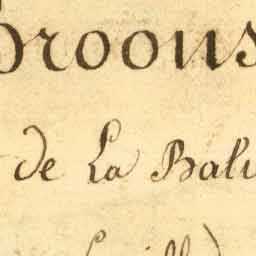 Broons
de La Bali